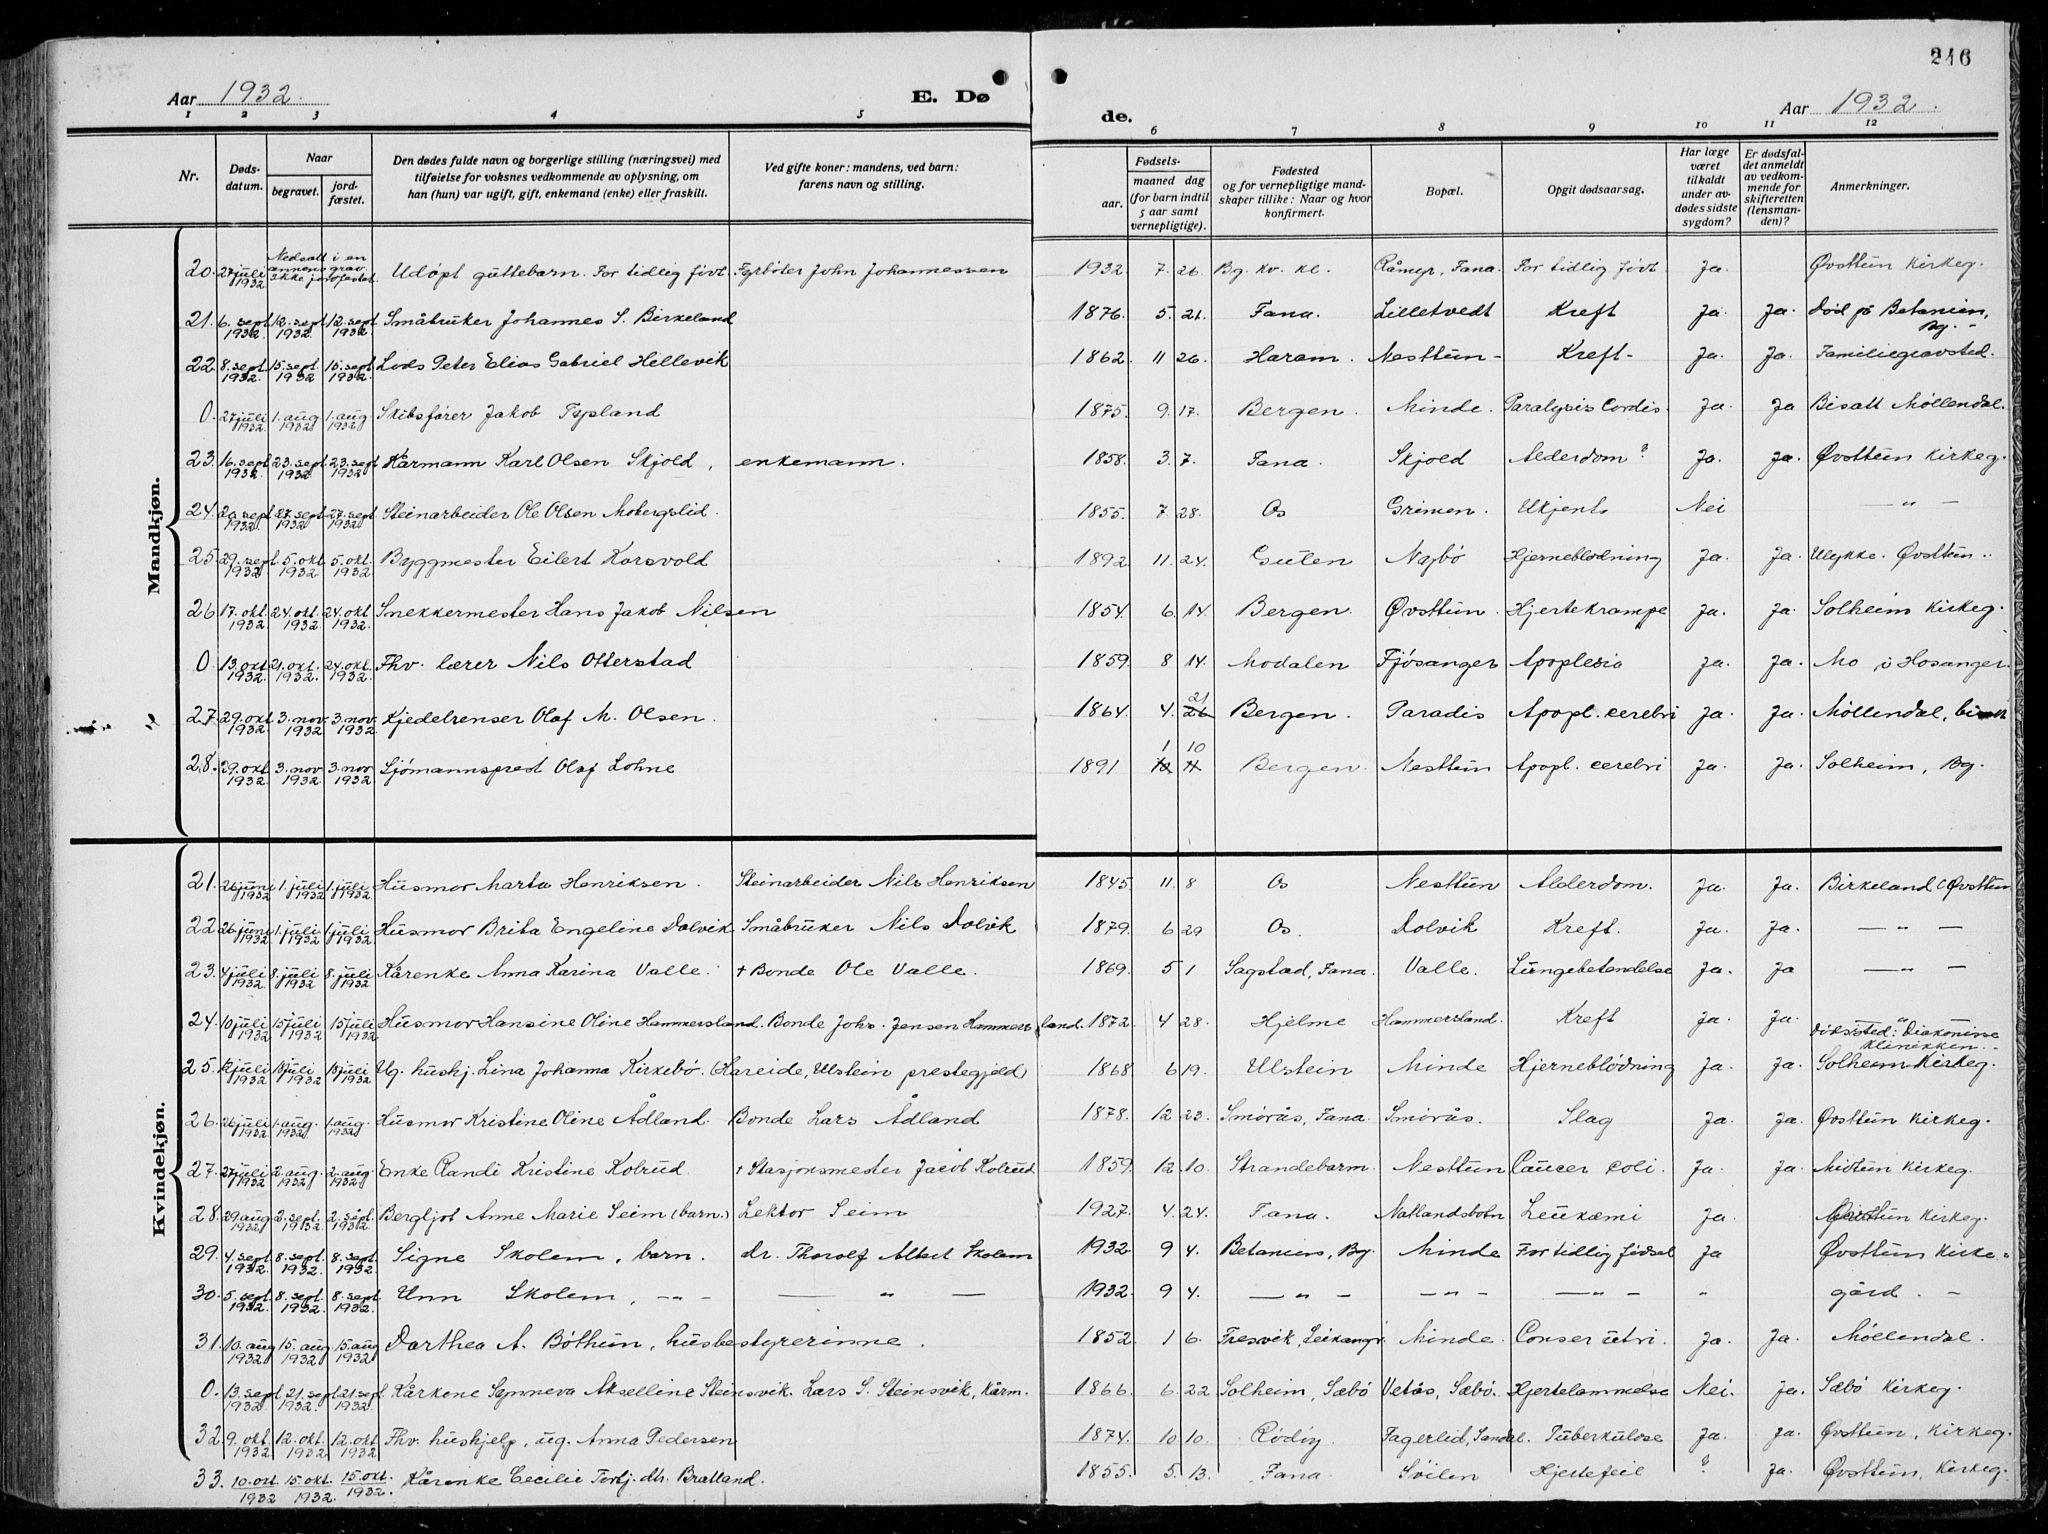 246
Aar 1932.
E. Dø
de.
Aar 1932.
1 2 3 4 5 6 7 8 9 10 11 12
Nr.
Dødsdatum.
Naar
begravet.
jordfæstet.
Den dødes fulde navn og borgerlige stilling (næringsvei) med
tilføielse for voksnes vedkommende av oplysning, om
han (hun) var ugift, gift, enkemand (enke) eller fraskilt.
Ved gifte koner: mandens, ved barn:
farens navn og stilling.
Fødsels-
aar.
maaned dag
(for barn indtil
5 aar samt
vernepligtige).
Fødested
og for vernepligtige mandskaper tillike: Naar og hvor
konfirmert.
Bopæl.
Opgit dødsaarsag.
Har læge
været
tilkaldt
under avdødes sidste
sygdom?
Er dødsfaldet anmeldt
av vedkommende for
skifteretten
(lensmanden)?
Anmerkninger.
Mandkjøn.
20. 27 juli 1932 Nedsatt i en annens grav ikke jordfestet. Udøpt guttebarn. For tidlig født Fyrbøter John Johannessen 1932 7. 26. Bg. kv. kl. Råmyr, Fana. For tidlig født Ja. Øvsttun Kirkeg.
21. 6. sept 1932 12. sept 1932 12. sept 1932 Småbruker Johannes S. Birkeland 1876. 5. 21. Fana. Lilletvedt Kreft Ja. Ja. Død på Betanien, Bg. -
22 8. sept 1932. 15. sept 1932 15. sept 1932 Lods Peter Elias Gabriel Hellevik 1862. 11 26. Haram. Nesttun - Kreft - Ja. Ja. Familiegravsted.
0. 27 juli 1932 1. aug 1932 1. aug 1932 Skibsfører Jakob Tysland 1875. 9. 17. Bergen. Minde. Paralysis Cordis. Ja. Ja Bisatt Møllendal.
23. 16. sept 1932. 23. sept 1932 23. sept 1932 Kårmann Karl Olsen Skjold, enkemann. 1858. 3. 7. Fana. Skjold Alderdom? Ja. Ja. Øvsttun Kirkeg.
24. 20 sept 1932 27. sept 1932 27. sept 1932 Steinarbeider Ole Olsen Mobergslid. 1855. 7 28. Os Grimen. Ukjent Nei — " —
25. 29. sept 1932 5. okt 1932 5. okt 1932 Byggmester Eilert Korsvold 1892 11. 24. Gulen Nøjbø Hjerneblødning Ja. Ja. Ulykke. Øvsttun..
26 17. okt 1932. 24. okt 1932 24. okt 1932 Snekkermester Hans Jakob Nilsen 1854. 6. 14. Bergen. Øvsttun. Hjertekrampe Ja. Ja. Solheim Kirkeg.
0 13. okt 1932 21. okt. 1932. 24. okt. 1932. Fhv. lærer Nils Otterstad 1859. 8 14. Modalen Fjøsanger Apoplexia Ja. Ja. Mo i Hosanger.
27. 29. okt 1932. 3. nov. 1932 3. nov. 1932. Kjedelrenser Olaf M. Olsen. 1864. 4. 26 21 Bergen. Paradis Apopl. cerebri Ja. Ja. Møllendal, bisatt
28. 29. okt 1932. 3. nov 1932 3. nov 1932 Sjømannsprest Olaf Lohne 1891 1 10 Bergen. Nesttun Apopl. cerebri Ja. Ja. Solheim, Bg.
Kvindekjøn.
21. 26 juni 1932 1. juli 1932 1. juli 1932 Husmor Marta Henriksen. Steinarbeider Nils Henriksen 1845. 11. 8 Os Nesttun Alderdom. Ja. Ja. Birkeland (Øvsttun
22 26 juni 1932 1. juli 1932 1. juli 1932 Husmor Brita Engeline Dolvik Småbruker Nils Dolvik 1879. 6 29 Os. Dolvik Kreft. Ja. Ja. — " —
23. 4 juli 1932 8. juli 1932 8. juli 1932 Kårenke Anna Karina Valle. + Bonde Ole Valle. 1869. 5 1 Sagstad, Fana. Valle. Lungebetendelse Ja. Ja — " —
24 10 juli 1932 15 juli 1932 15 juli 1932 Husmor Hansine Oline Hammersland. Bonde Johs. Jensen Hammersland. 1872. 4 28. Hjelme Hammersland. Kreft Ja. Ja. " Dødssted: Diakonisse klinikken..
25. 12 juli 1932 18 juli 1932 18 juli 1932 Ug. hushj. Lina Johanna Kirkebø. (Hareide, Ulstein prestegjeld) 1868 6 19. Ulstein Minde Hjerneblødning Ja. Ja. Solheim Kirkeg.
26. 26 juli 1932 1. aug. 1932 1. aug. 1932 Husmor Kristine Oline Ådland. Bonde Lars Ådland 1878. 12 23. Smørås, Fana. Smørås. Slag Ja. Ja. Øvsttun Kirkeg.
27. 27 juli 1932 2. aug. 1932 2. aug. 1932. Enke Randi Kristine Kolrud + Stasjonsmester Jacob Kolrud 1859. 12 10. Strandebarm. Nesttun Cancer coli. Ja. Ja. Midtun Kirkeg.
28. 29 aug 1932 2. sept. 1932 2. sept. 1932. Bergljot Anne Marie Seim (barn.) Lektor Seim 1927. 4. 24. Fana. Natlandsbotn Leukæmi Ja. Kirkeg.
29. 4. sept 1932. 8. sept. 1932. 8. sept. 1932. Signe Skolem, barn. dr. Thoralf Albert Skolem 1932. 9 4. Betanien, Bg. Minde For tidlig fødsel Ja Øvsttun Kirke-
30. 5. sept 1932. 8. sept. 1932. 8. sept. 1932. Unn Skolem, — " — — " — 1932. 9 4. — " — — " — — " — " gård. —
31. 10. aug 1932 15. aug 1932 15. aug 1932 Dorthea A. Bøthun, husbestyrerinne. 1852. 1 6. Fresvik, Leikanger Minde. Ja. Ja. Møllendal.
0. 13. sept 1932 21. sept 1932. 21. sept 1932. Kårkone Synneva Akselline Steinsvik. Lars S. Steinsvik, Kårm. 1866. 6. 22 Solheim, Sæbø Vetås, Sæbø. Hjertelammelse Nei. Ja. Sæbø Kirkeg.
32. 9. okt 1932 12. okt. 1932 12. okt 1932 Fhv. hushjelp, ug. Anna Pedersen 1874. 10 10. Rødøy Fagerlid, Sandal. Tuberkulose Ja. Ja. Øvsttun, Kirkeg.
33. 10. okt 1932 15. okt. 1932. 15. okt. 1932. Kårenke Cecilie Torbj. dtr. Bratland. 1855. 5. 13. Fana. Søilen Hjertefeil ? Ja. Øvsttun, Kirkeg.